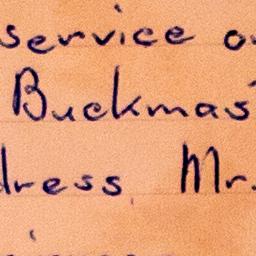 service o
Buckmas
dress Mr.